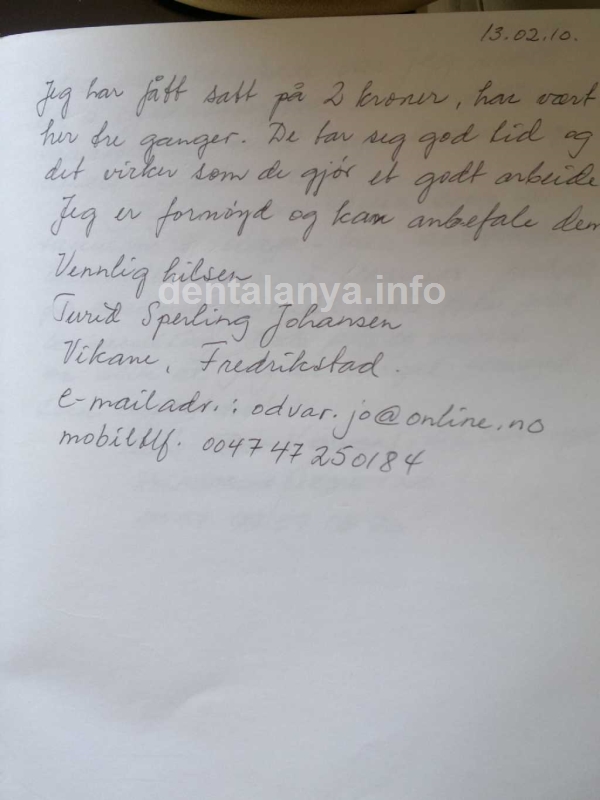 13.02.10.
Jeg har fått satt på 2 kroner, har vært
her tre ganger. De tar seg god tid og
det virker som de gjør et godt arbeide
Jeg er fornøyd og kan anbefale dem
Vennlig hilsen
dentalanya.info
Turid Sperling Johansen
Vikane, Fredrikstad.
e-mailadr.: odvar.jo@online.no
mobiltlf. 0047 47 250184